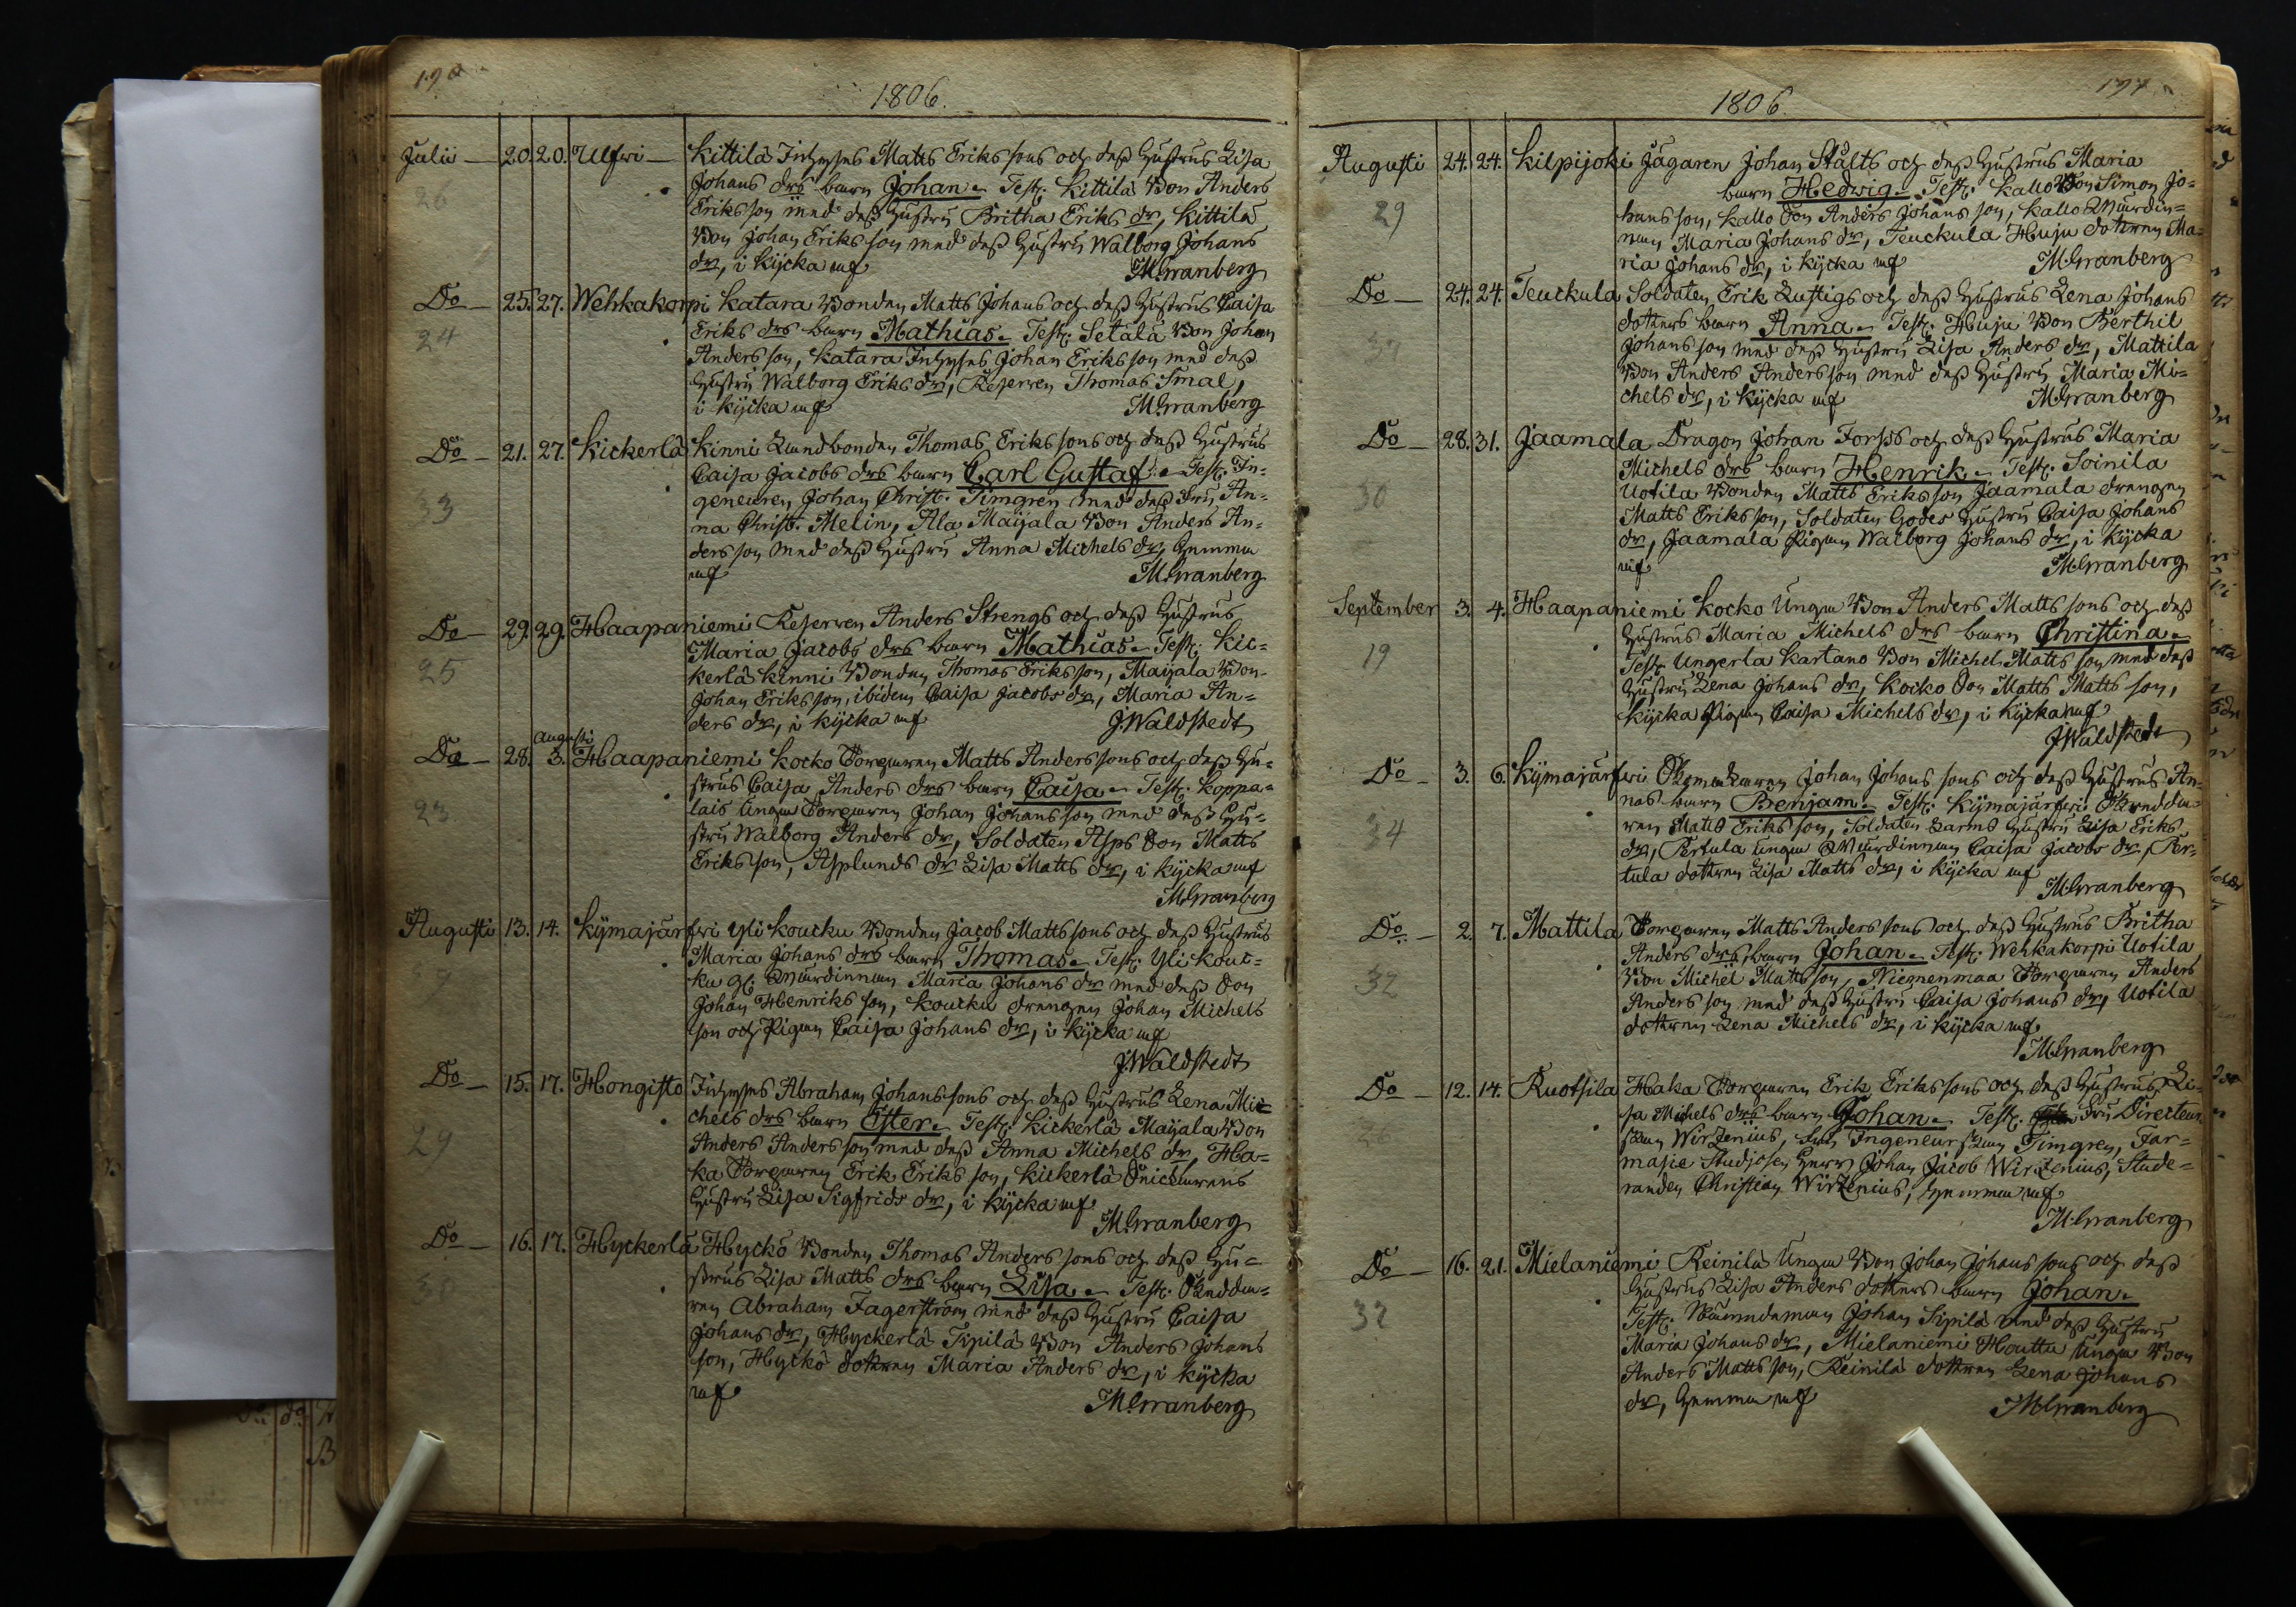 190
1806.
Julii — 20. 20. Ulfwi — Kittilä Inhyses Matts Eriks sons och dess Hustrus Lisa
26
Johans drs barn Johan. Test: Kittilä Bon Anders
Eriks son med dess Hustru Britha Eriks dr, Kittilä
Bon Johan Eriks son med dess Hustru Walborg Johans
dr, i Kÿcka
M:Granberg
Do — 25. 27. Wehkakorpi Katara Bonden Matts Johans och dess Hustrus Caisa
24
Eriks drs barn Mathias. Test: Setälä Bon Johan
Anders son, Katara Inhyses Johan Eriks son med dess
Hustru Walborg Eriks dr, Reserven Thomas Smal,
i Kÿcka
M:Granberg
Do — 21. 27. Kickerlä Kinni Landbonden Thomas Eriks sons och dess Hustrus
33
Caisa Jacobs drs barn Carl Gustaf. Test: In-
geneuren Johan Christ. Timgren med dess Fru An-
na Christ. Melin, Ala Maÿala Bon Anders An-
ders son med dess Hustru Anna Michels dr, hemma
M:Granberg
Do — 29. 29. Haapaniemi Reserven Anders Strengs och dess Hustrus
25
Maria Jacobs drs barn Mathias. Test: Kic-
kerlä Kinni Bonden Thomas Eriks son, Maÿala Bon
Johan Eriks son, ibidem Caisa Jacobs dr, Maria An-
ders dr, i Kÿcka
J:Waldstedt
Augusti
Do — 28. 3. Haapaniemi Kocko Torparen Matts Anders sons och dess Hu-
23
strus Caisa Anders drs barn Caisa. Test: Koppa-
lais Unga Torparen Johan Johans son med dess Hu-
stru Walborg Anders dr, Soldaten Asps Son Matts
Eriks son, Asplunds dr Lisa Matts dr, i Kÿcka
M:Granberg
Augusti 13. 14. Kÿmajärfwi Yli Koucku Bonden Jacob Matts sons och dess Hustrus
Maria Johans drs barn Thomas. Test: Yli Kouc-
ku gl: Wärdinnan Maria Johans dr med dess Son
Johan Henriks son, Koucku drengen Johan Michels
son och Pigan Caisa Johans dr, i Kÿcka
J:Waldstedt
Do — 15. 17. Hongisto Inhyses Abraham Johans sons och dess Hustrus Lena Mi-
29
chels drs barn Ester. Test: Kickerlä Maÿala Bon
Anders Anders son med dess Anna Michels dr, Ha-
ka Torparen Erik Eriks son, Kickerlä Snickarens
Hustru Lisa Sigfrids dr, i Kÿcka
M:Granberg
Do — 16. 17. Hyckerlä Hyckö Bonden Thomas Anders sons och dess Hu-
strus Lisa Matts drs barn Lisa. Test: Skredda-
ren Abraham Fagerström med dess Hustru Caisa
Johans dr, Hyckerlä Sipilä Bon Anders Johans
son, Hyckö dottren Maria Anders dr, i Kÿcka
M:Granberg
191
1806.
Augusti 24. 24. Kilpijoki Jägaren Johan Stålts och dess Hustrus Maria
29
barn Hedwig. Test: Kallo Bon Simon Jo-
hans son, Kallo Son Anders Johans son, Kallo Wärdin-
nan Maria Johans dr, Teuckula Huju dottren Ma-
ria Johans dr, i Kÿcka
M:Granberg
Do — 24. 24. Teuckula Soldaten Erik Lustigs och dess Hustrus Lena Johans
dotters barn Anna. Test: Huju Bon Berthil
Johans son med dess Hustru Lisa Anders dr, Mattila
Bon Anders Anders son med dess Hustru Maria Mi-
chels dr, i Kÿcka
M:Granberg
Do — 28. 31. Jaamala Dragon Johan Forss och dess Hustrus Maria
30
Michels drs barn Henrik. Test: Soinila
Uotila Bonden Matts Eriks son Jaamala drengen
Matts Eriks son, Soldaten Godes Hustru Caisa Johans
dr, Jaamala Pigan Walborg Johans dr, i Kÿcka
M:Granberg
September 3. 4. Haapaniemi Kocko Unga Bon Anders Matts sons och dess
19
Hustrus Maria Michels drs barn Christina.
Test: Ungerla Kartano Bon Michel Matts son med dess
Hustru Lena Johans dr, Kocko Son Matts Matts son,
Kÿcka Pigan Caisa Michels dr, i Kÿcka
J:Waldstedt
Do — 3. 6. Kÿmajärfwi Skomakaren Johan Johans sons och dess Hustrus An-
34
nas barn Benjam. Test: Kÿmajärfwi Skredda-
ren Matts Eriks son, Soldaten Larms Hustru Lisa Eriks
dr, Pertula unga Wärdinnan Caisa Jacobs dr, Per-
tula dottren Lisa Matts dr, i Kÿcka
M:Granberg
Do — 2. 7. Mattila Torparen Matts Anders sons och dess Hustrus Britha
32
Anders drs barn Johan. Test: Wehkakorpi Uotila
Bon Michel Matts son, Niemenmaa Torparen Anders
Anders son med dess Hustru Caisa Johans dr, Uotila
dottren Lena Michels dr, i Kÿcka
M:Granberg
Do — 12. 14. Ruotsila Haka Torparen Erik Eriks sons och dess Hustrus Li-
26
sa Michels drs barn Johan. Test: Fru Directeur
skan Wirzenius, Fru Ingeneur skan Timgren, Far-
masie Studiosen Herr Johan Jacob Wirzenius, Stude-
randen Christian Wirzenius, hemma
M:Granberg
Do — 16. 21. Mielaniemi Reinilä Unga Bon Johan Johans sons och dess
32
Hustrus Lisa Anders dotters barn Johan.
Test: Nämndeman Johan Sipilä med dess Hustru
Maria Johans dr, Mielaniemi Houtta Unga Bon
Anders Matts son, Reinilä dottren Lena Johans
dr, hemma
M:Granberg